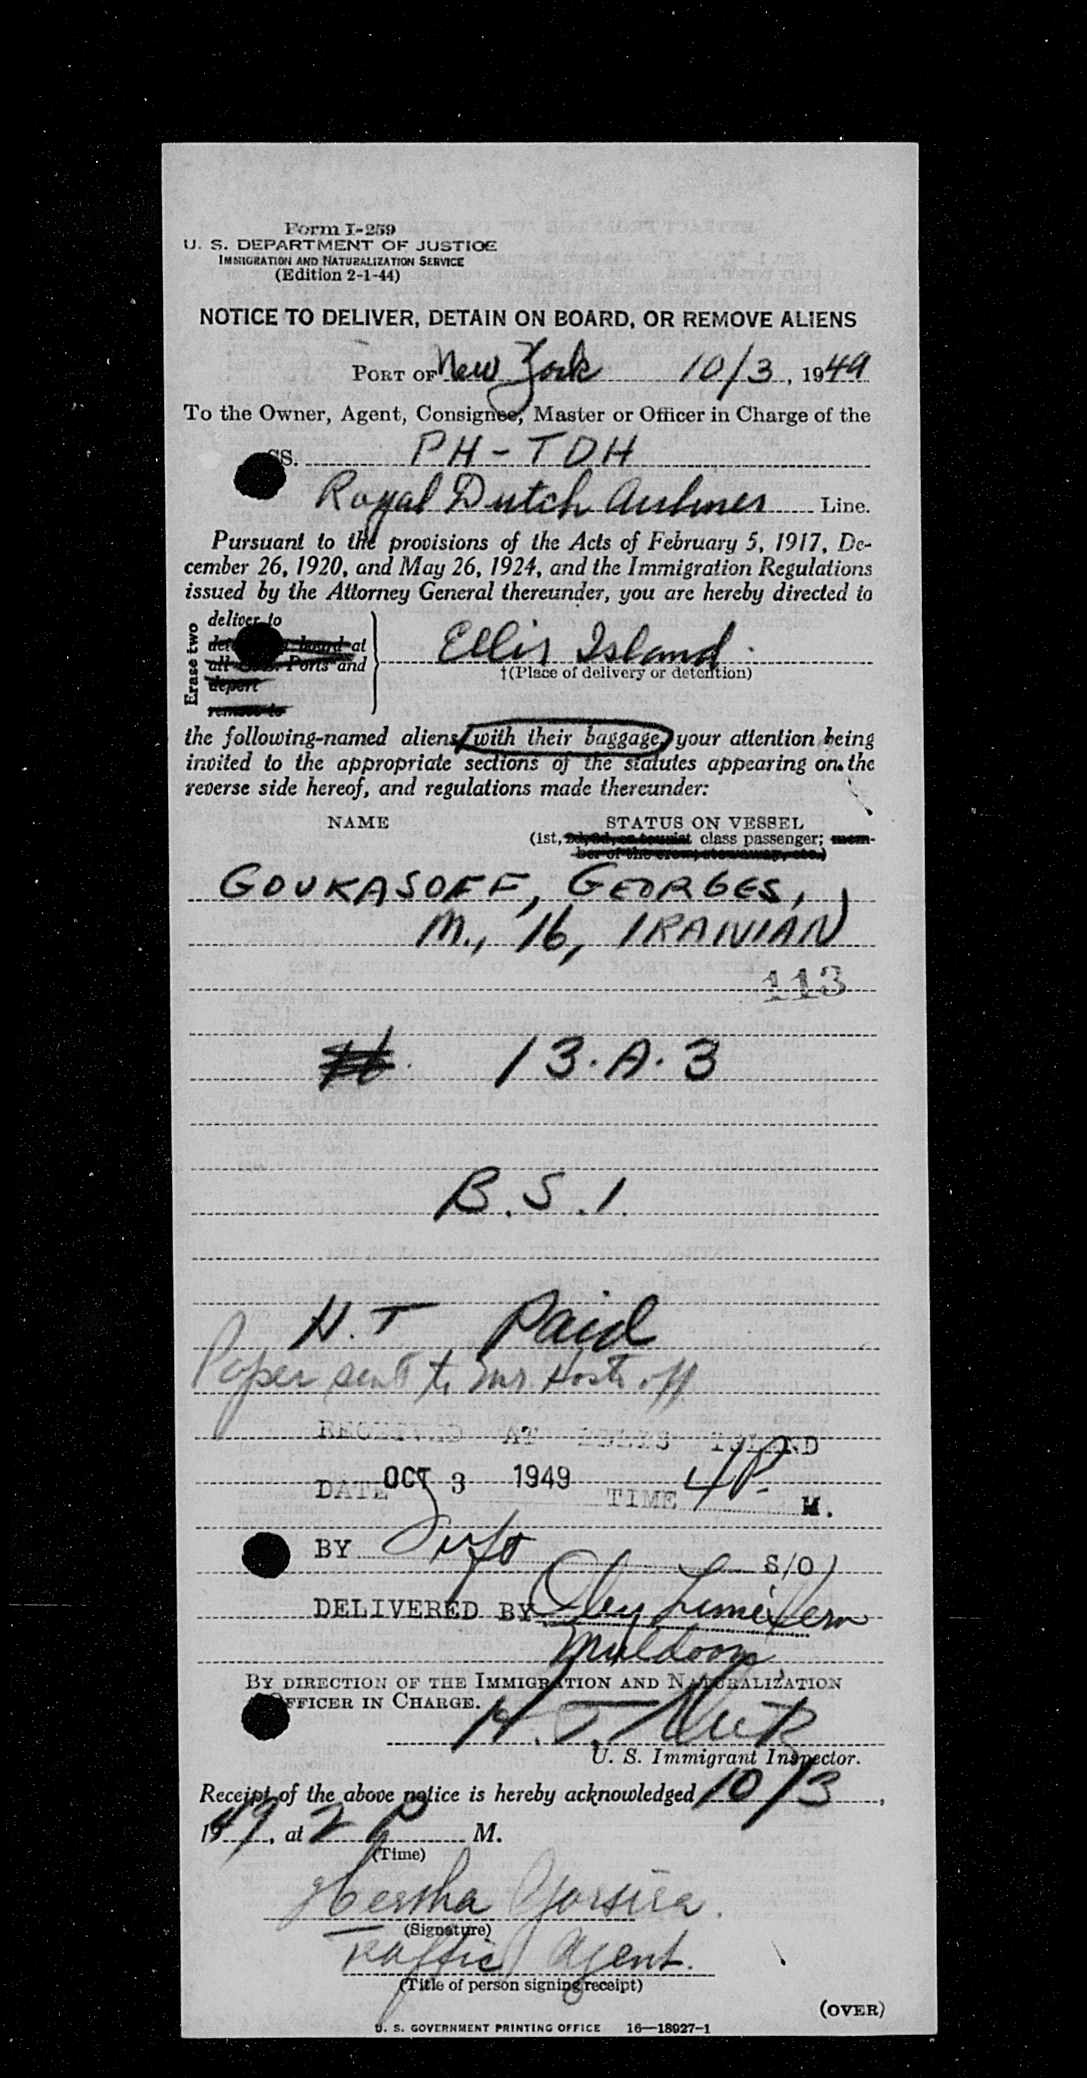 Form I-259
U. S. DEPARTMENT OF JUSTICE
IMMIGRATION AND NATURALIZATION SERVICE
(Edition 2-1-44)
NOTICE TO DELIVER, DETAIN ON BOARD, OR REMOVE ALIENS
PORT OF New York 10/3, 1949
To the Owner, Agent, Consignee, Master or Officer in Charge of the
SS. PH-TDH
Royal Dutch Airlines Line.
Pursuant to the provisions of the Acts of February 5, 1917, De-
cember 26, 1920, and May 26, 1924, and the Immigration Regulations
issued by the Attorney General thereunder, you are hereby directed to
Erase two
deliver to
board at
all Ports and
deport
remove to
Ellis Island
†(Place of delivery or detention)
the following-named aliens with their baggage, your attention being
invited to the appropriate sections of the statutes appearing on the
reverse side hereof, and regulations made thereunder:
NAME STATUS ON VESSEL
(1st, 2d, 3d, or tourist class passenger; mem-
ber of the crew, stowaway, etc.)
GOUKASOFF, GEORGES,
M., 16, IRANIAN
113
13.A.3
B.S.I.
H.T Paid
Paper sent to Mr. Hostoff
RECEIVED AT ELLIS ISLAND
DATE OCT 3 1949 TIME 4 P. M.
BY S/O
DELIVERED BY
Muldoon
BY DIRECTION OF THE IMMIGRATION AND NATURALIZATION
OFFICER IN CHARGE.
H. T.
U. S. Immigrant Inspector.
Receipt of the above notice is hereby acknowledged 10/3,
1949, at 2 P M.
(Time)
Hertha Gorsira.
(Signature)
Traffic Agent.
(Title of person signing receipt)
(OVER)
U. S. GOVERNMENT PRINTING OFFICE 16—18927-1